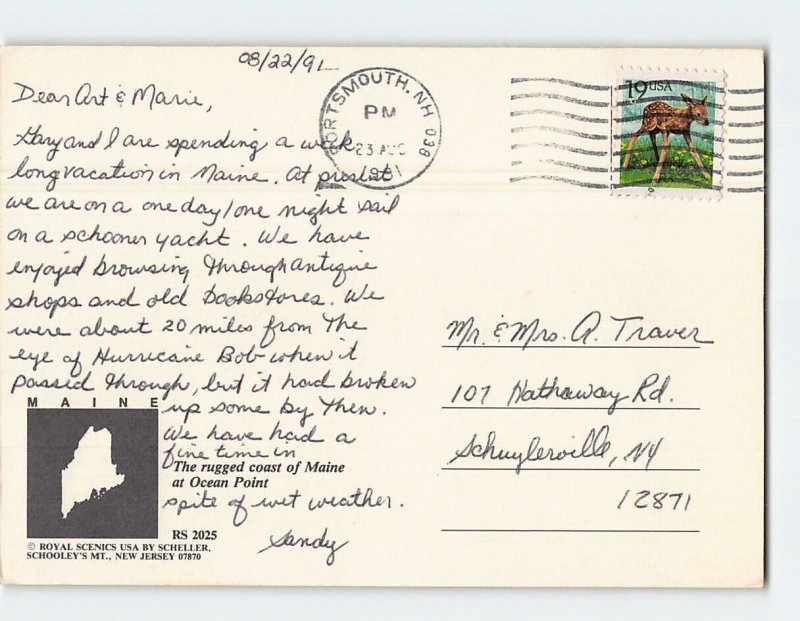 08/22/91
Dear Art & Marie,
Gary and I are spending a week
long vacation in Maine. At present
we are on a one day/one night sail
on a schooner yacht. We have
enjoyed browsing through antique
shops and old bookstores. We
were about 20 miles from the
eye of Hurricane Bob when it
passed through, but it had broken
up some by then.
We have had a
fine time in
spite of wet weather.
Sandy
MAINE
The rugged coast of Maine
at Ocean Point
RS 2025
© ROYAL SCENICS USA BY SCHELLER,
SCHOOLEY'S MT., NEW JERSEY 07870
PORTSMOUTH, NH 038
PM
23 AUG
1991
19 USA
Mr. & Mrs. A. Traver
107 Hathaway Rd.
Schuylerville, NY
12871